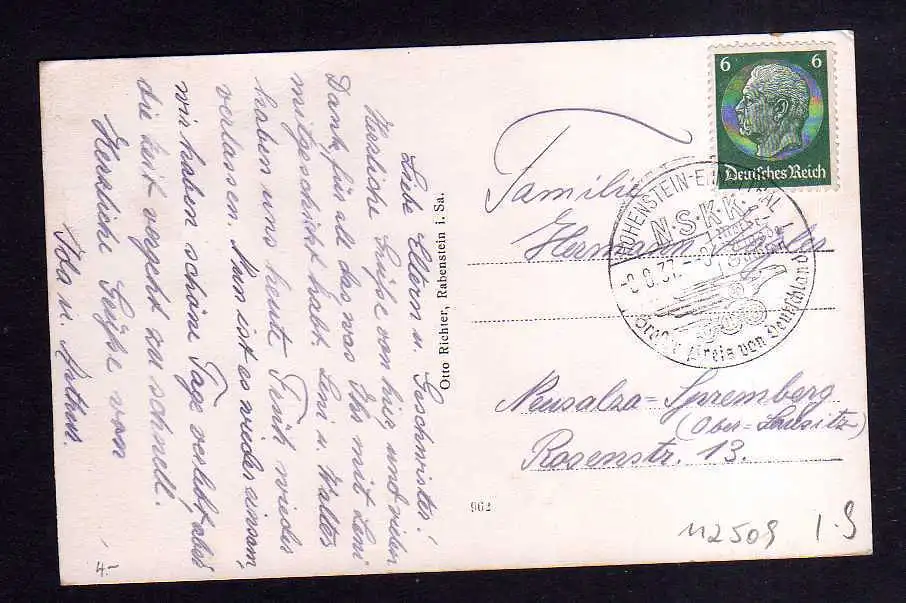 Liebe Eltern u. Geschwister!
Herzliche Grüße von hier und vielen
Dank für all das was Ihr mit Leni
mitgeschickt habt. Leni u. Walter
haben uns heute Früh wieder
verlassen. Nun ist es wieder einsam,
wir haben schöne Tage verlebt, aber
die Zeit vergeht zu schnell.
Herzliche Grüße von
u. Arthur.
4.-
Otto Richter, Rabenstein i. Sa.
962
6 6
Deutsches Reich
HOHENSTEIN-ERNSTTHAL
N.S.K.K.
Große Preis von Deutschland
Familie
Hermann
Neusalza=Spremberg
(Ober=Lausitz)
Rosenstr. 13.
112509 1.9